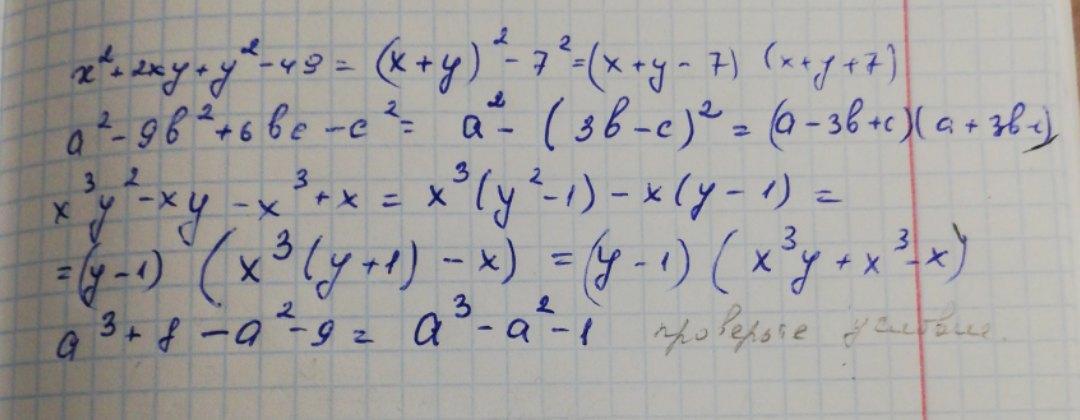 x²+2xy+y²-49 = (x+y)²-7²=(x+y-7) (x+y+7)
a²-9b²+6bc-c²= a²-(3b-c)²=(a-3b+c)(a+3b-c)
x³y²-xy-x³+x = x³(y²-1)-x(y-1) =
=(y-1) (x³(y+1)-x) =(y-1) (x³y+x³-x)
a³+8-a²-9= a³-a²-1 проверьте условие.